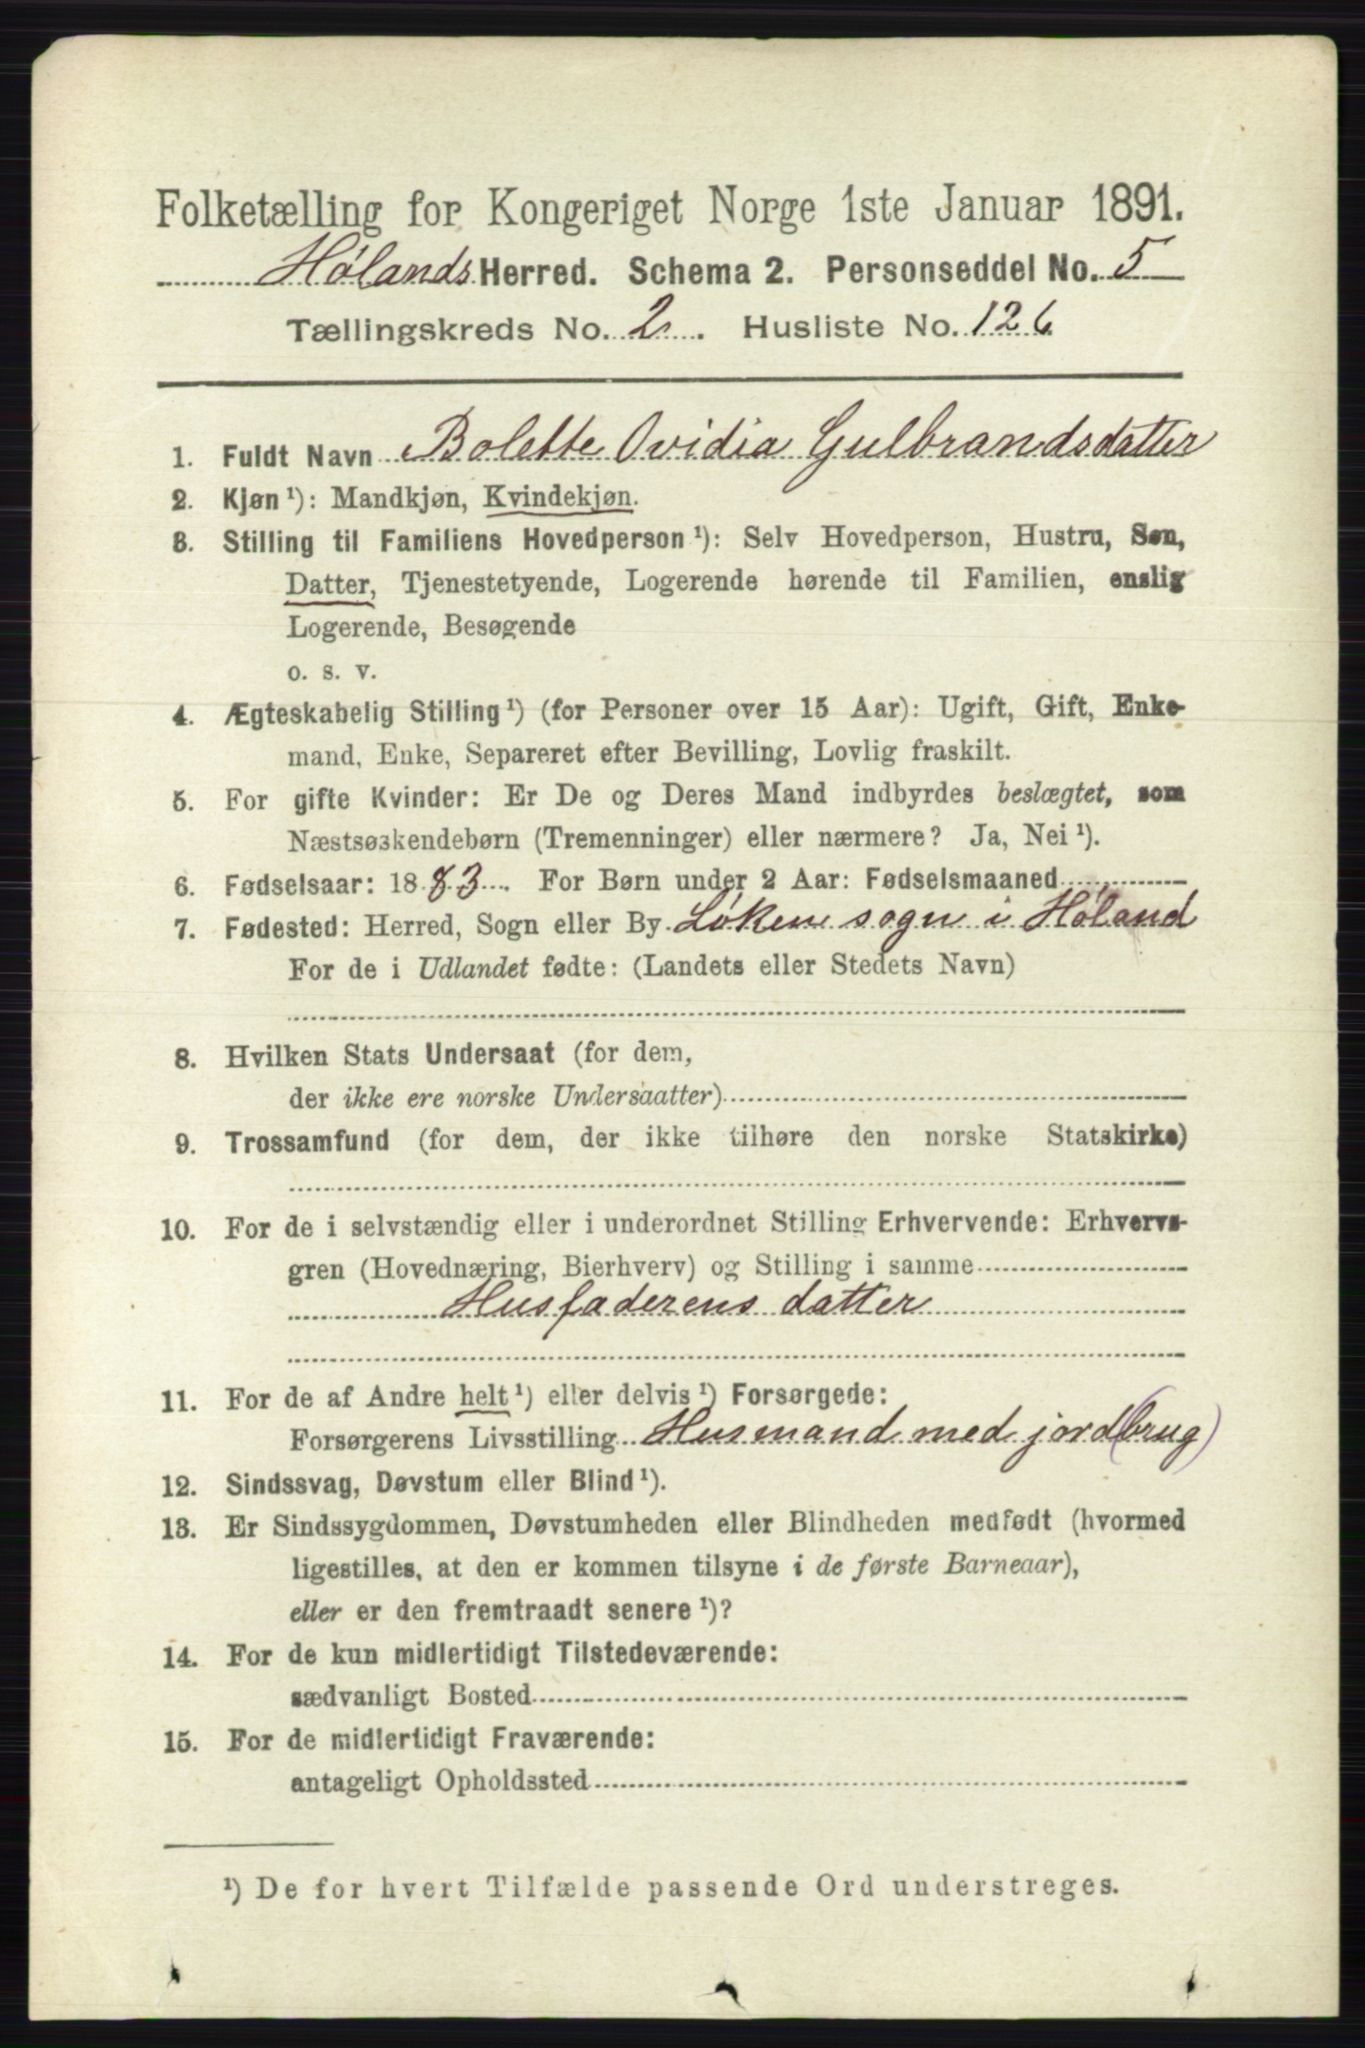 Folketælling for Kongeriget Norge 1ste Januar 1891.
Hølands Herred. Schema 2. Personseddel No. 5
Tællingskreds No. 2. Husliste No. 126
1. Fuldt Navn Bolette Ovidia Gulbrandsdatter
2. Kjøn ¹): Mandkjøn, Kvindekjøn.
3. Stilling til Familiens Hovedperson ¹): Selv Hovedperson, Hustru, Søn,
Datter, Tjenestetyende, Logerende hørende til Familien, enslig
Logerende, Besøgende
o. s. v.
4. Ægteskabelig Stilling ¹) (for Personer over 15 Aar): Ugift, Gift, Enke-
mand, Enke, Separeret efter Bevilling, Lovlig fraskilt.
5. For gifte Kvinder: Er De og Deres Mand indbyrdes beslægtet, som
Næstsøskendebørn (Tremenninger) eller nærmere? Ja, Nei ¹).
6. Fødselsaar: 1883. For Børn under 2 Aar: Fødselsmaaned
7. Fødested: Herred, Sogn eller By Løken sogn i Høland
For de i Udlandet fødte: (Landets eller Stedets Navn)
8. Hvilken Stats Undersaat (for dem,
der ikke ere norske Undersaatter)
9. Trossamfund (for dem, der ikke tilhøre den norske Statskirke)
10. For de i selvstændig eller i underordnet Stilling Erhvervende: Erhvervs-
gren (Hovednæring, Bierhverv) og Stilling i samme
Husfaderens datter
11. For de af Andre helt ¹) eller delvis ¹) Forsørgede:
Forsørgerens Livsstilling Husmand med jord (brug)
12. Sindssvag, Døvstum eller Blind ¹).
13. Er Sindssygdommen, Døvstumheden eller Blindheden medfødt (hvormed
ligestilles, at den er kommen tilsyne i de første Barneaar),
eller er den fremtraadt senere ¹)?
14. For de kun midlertidigt Tilstedeværende:
sædvanligt Bosted
15. For de midlertidigt Fraværende:
antageligt Opholdssted
¹) De for hvert Tilfælde passende Ord understreges.